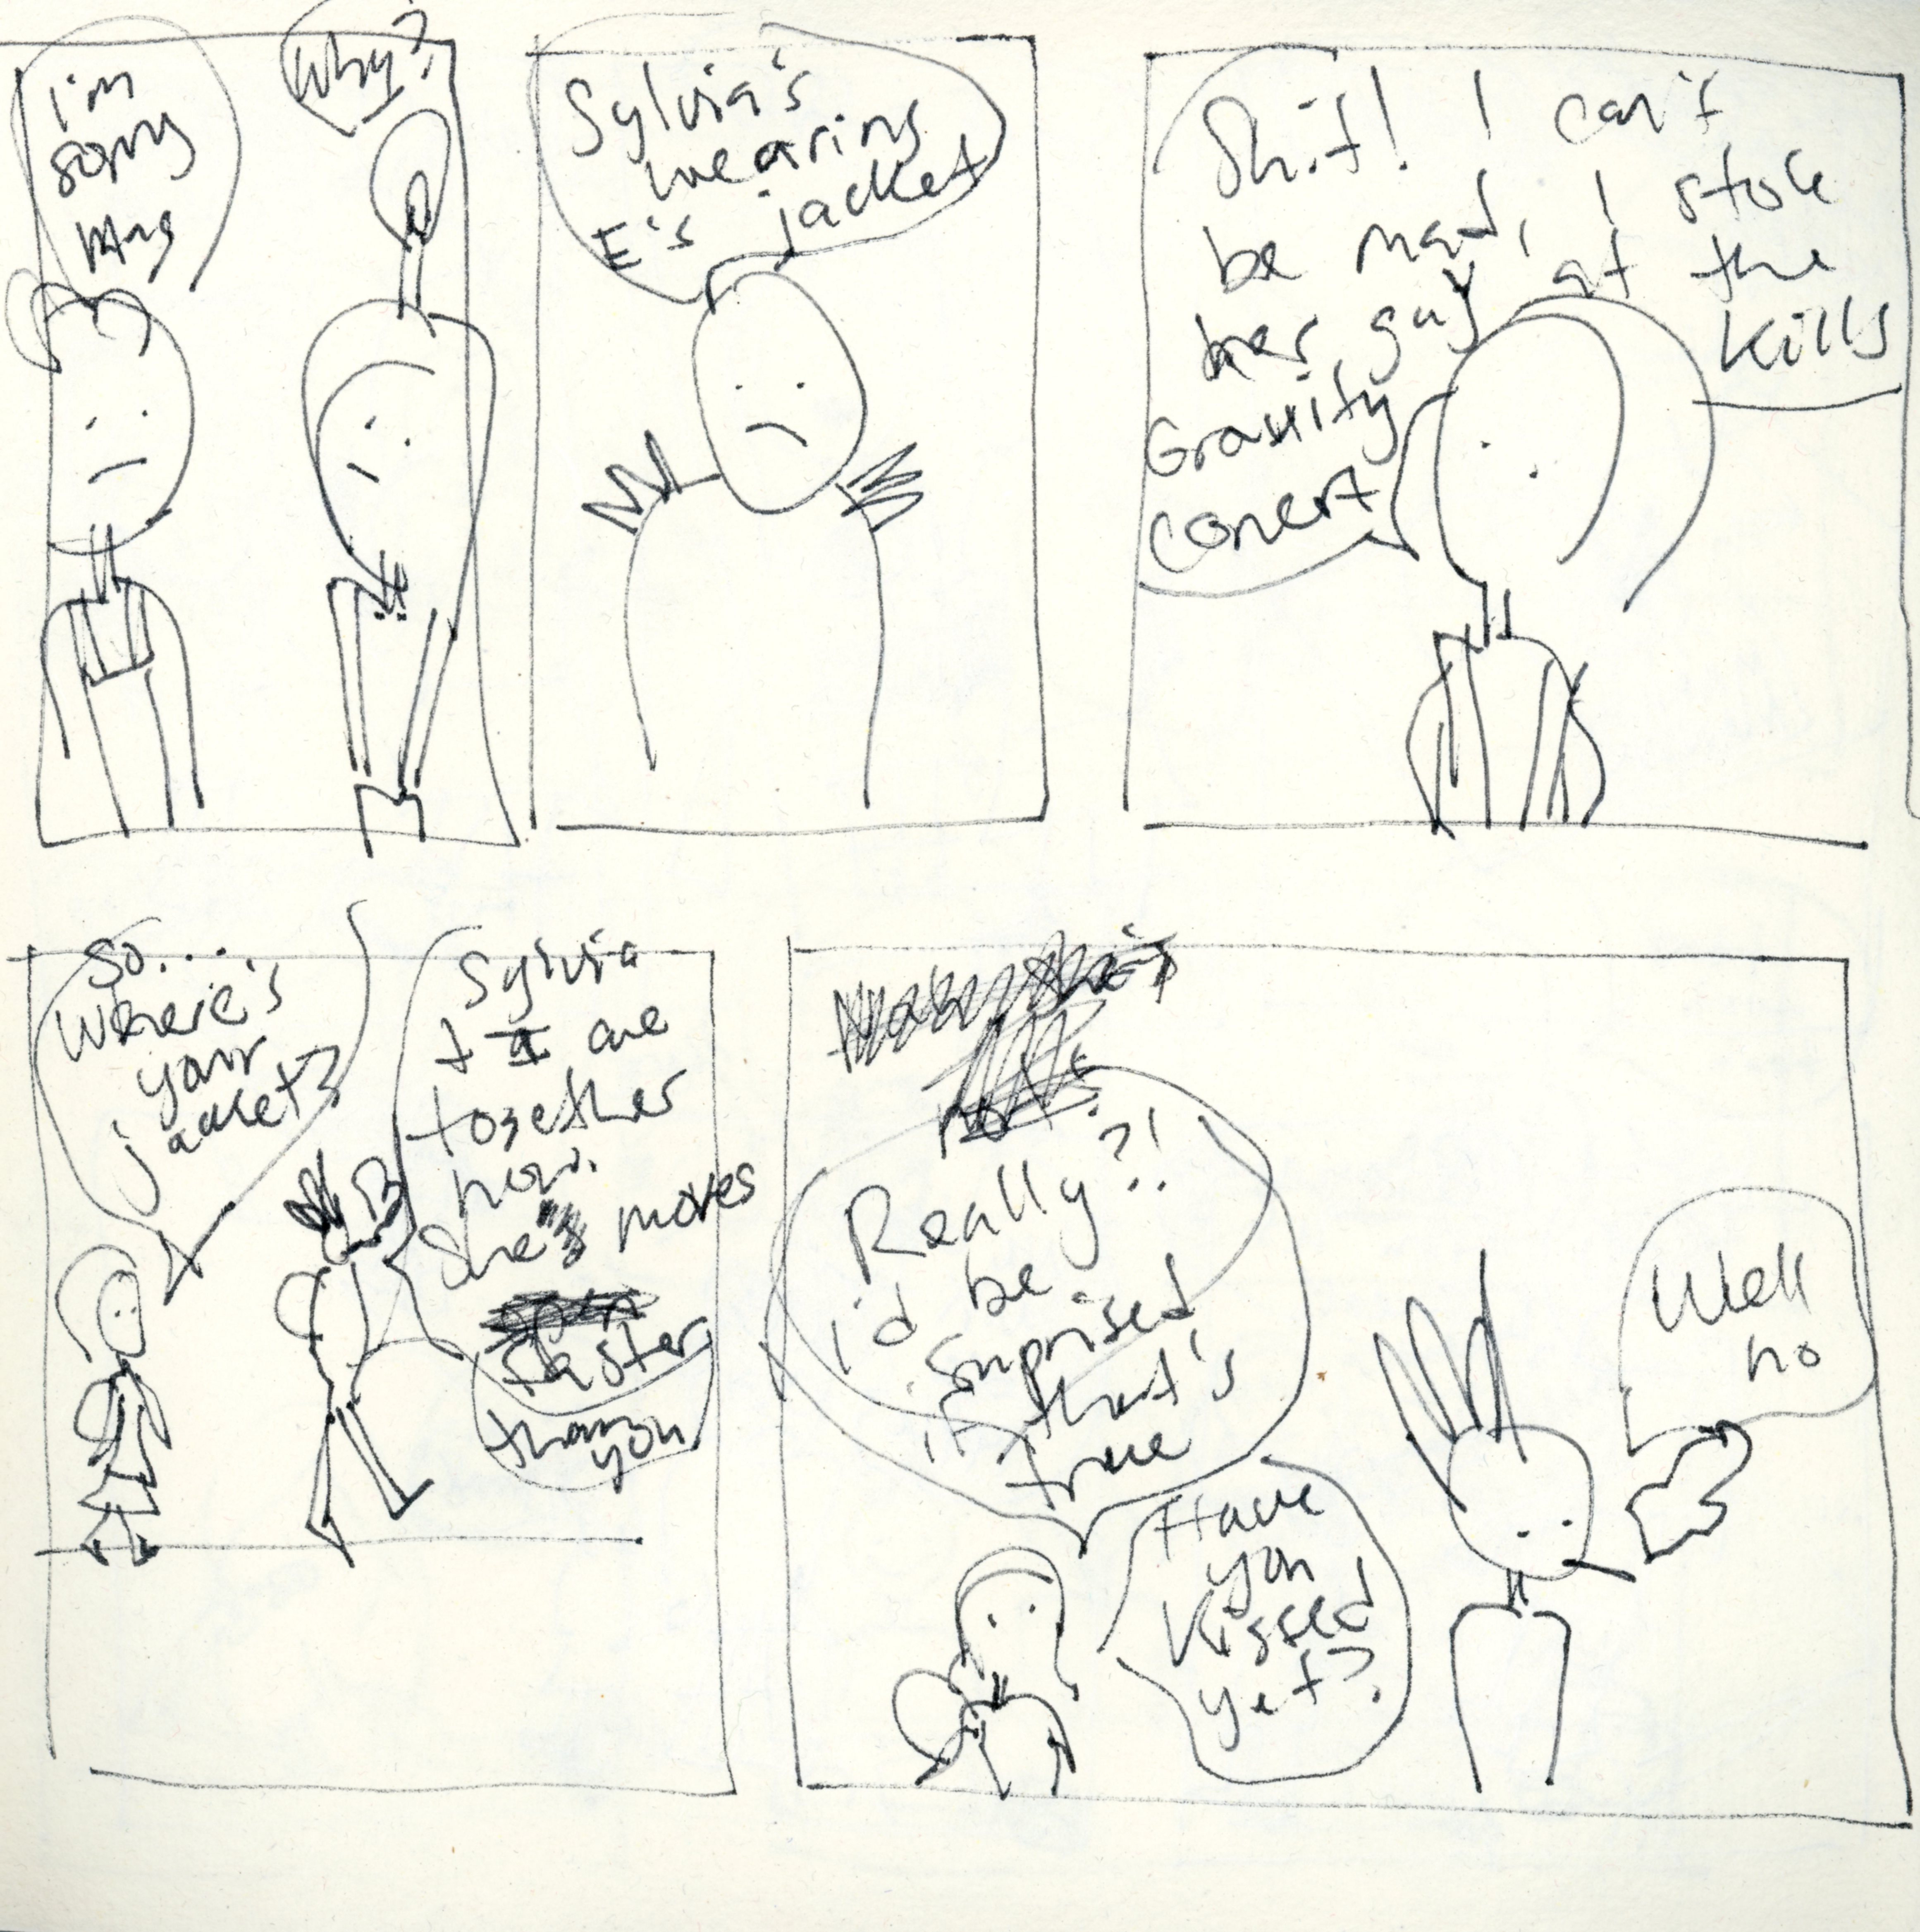 I'm
sorry
Mags
Why?
Sylvia's
wearing
E's jacket
Shit! I can't
be mad, I stole
her guy at the
Gravity Kills
concert
So....
Where's
your
jacket?
Sylvia
+ I are
together
now.
She moves
faster
than
you
Really?!
I'd be
surprised
if that's
true
Have
you
kissed
yet?
Well
no